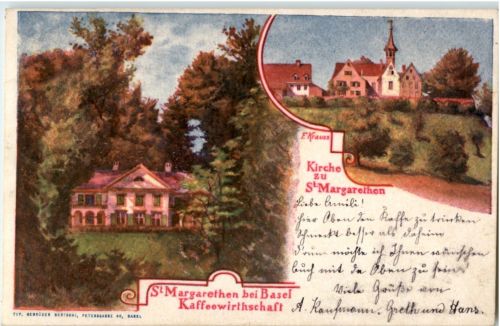 F. Krauss
Kirche
zu
St. Margarethen
Liebe Améli!
hier Oben den Kaffe zu trinken
schmeckt besser als daheim
Drum möchte ich Ihnen wünschen
auch mit da Oben zu sein
Viele Grüße von
A. Kaufmann, Greth und Hans.
St. Margarethen bei Basel
Kaffeewirthschaft
TYP. GEBRÜDER BERTSCHI, PETERSGASSE 40, BASEL